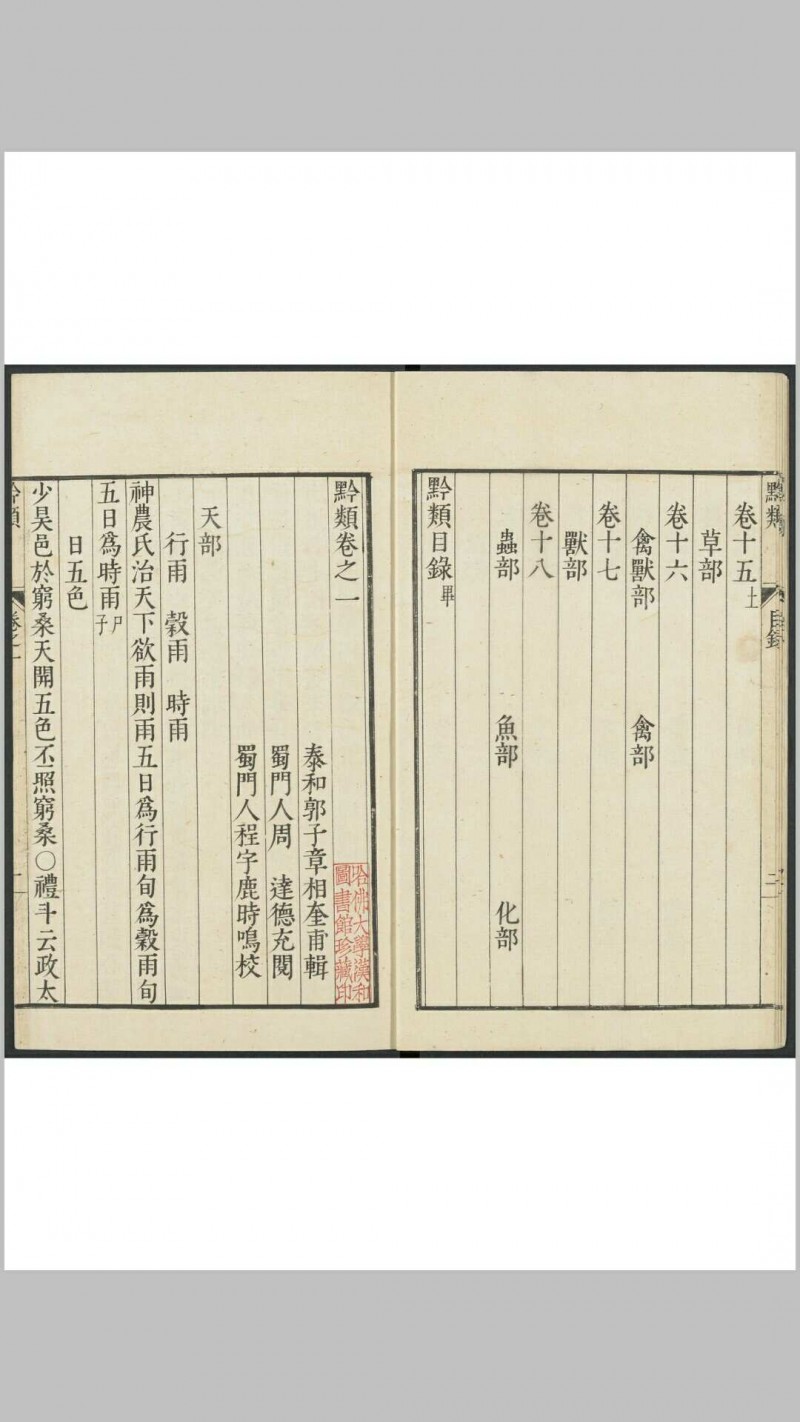 黔類
目錄
卷十五上
草部
卷十六
禽獸部 禽部
卷十七
獸部
卷十八
蟲部 魚部 化部
黔類目錄畢
黔類卷之一
泰和郭子章相奎甫輯
蜀門人周 達德充閱
蜀門人程宇鹿時鳴校
天部
行雨 穀雨 時雨
神農氏治天下欲雨則雨五日爲行雨旬爲穀雨旬
五日爲時雨尸子
日五色
少昊邑於窮桑天開五色丕照窮桑〇禮斗云政太
卷之一
哈佛大學漢和
圖書館珍藏印